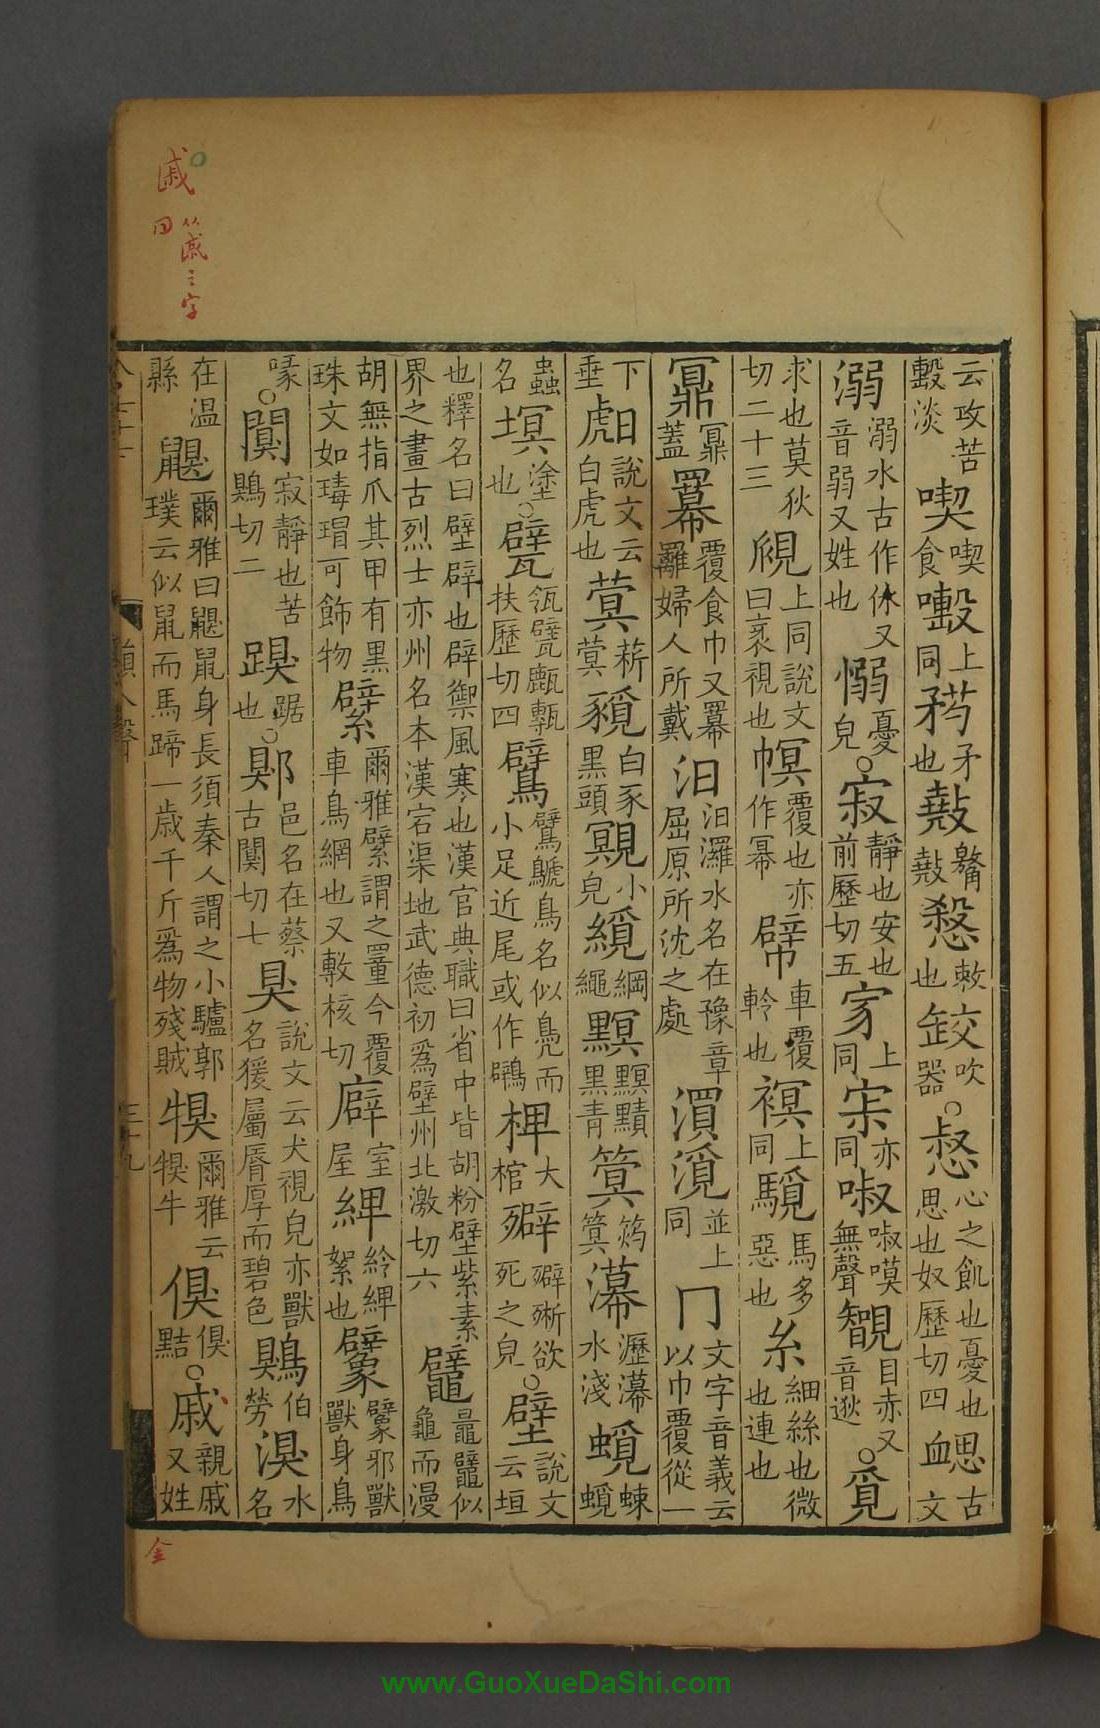 云攻苦擊淡喫喫食㗜上同𥍝矛也㩻㿲㩻㦎敕也㰾吹器○惄心之飢也憂也思也奴歷切四㥾古文
溺溺水古作㲻又音弱又姓也愵憂皃○寂靜也安也前歷切五㝌上同宋亦同㗉㗉嘆無聲䚉目赤又音逖○覓
求也莫狄切二十三𧠟上同說文曰衺視也幎覆也亦作幂幦車覆軨也䄙上同䮭馬多惡也糸細絲也微也連也
鼏鼏蓋羃覆食巾又羃䍦婦人所戴汨汨羅水名在豫章屈原所沈之處㵋𣽅並上同冂文字音義云以巾覆從一
下垂甝說文云白虎也蓂菥蓂豥白豕黑頭覭小皃䌐綱繩䵋䵋黑青䈿䈿㓬水淺螟蛷蟲名
塓塗也○甓瓴甓㼾甎扶歷切四鷿鷿鷈鳥名似鳧而小足近尾或作鸊椑大棺㱟㱟㱤欲死之皃○壁說文云垣
也釋名曰壁辟也辟禦風寒也漢官典職曰省中皆胡粉壁紫素界之畫古烈士亦州名本漢宕渠地武德初爲壁州北激切六鼊鼊似龜而漫
胡無指爪其甲有黑珠文如瑇瑁可飾物繴爾雅繴謂之罿今覆車鳥網也又㪵核切廦室屋綼紷綼絮也𧲜𧲜邪獸獸身鳥
喙○闃寂靜也苦鶪切二䠐踞也○郹邑名在蔡古闃切七狊說文云犬視皃亦獸名猨屬脣厚而碧色鶪伯勞湨水名
在溫縣鼳爾雅曰鼳鼠身長須秦人謂之小驢郭璞云似鼠而馬蹄一歲千斤爲物殘賊犑爾雅云犑牛㒐㒐黠○戚親戚又姓
戚
錫入聲
三十九
金
www.GuoXueDaShi.com